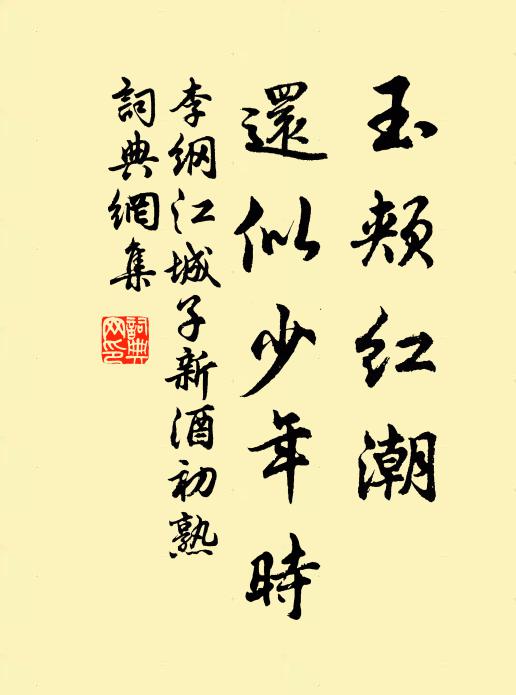 玉頰红潮
還似少年時
李纲江城子新酒初熟
詞典網集
詞典
网印